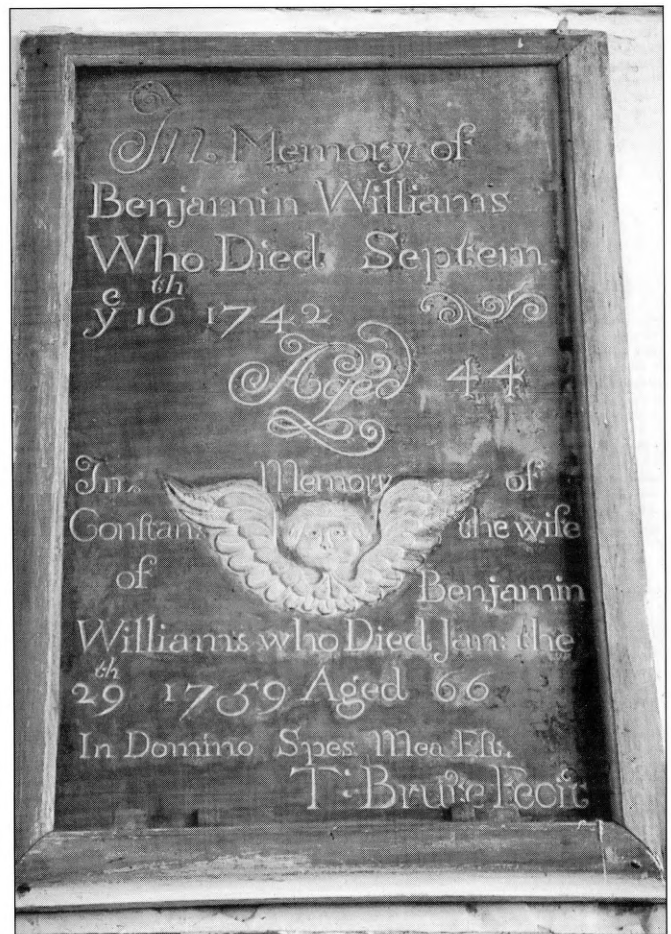 In Memory of
Benjamin Williams
Who Died Septem
yᵉ 16ᵗʰ 1742
Aged 44
In Memory of
Conſtan: the wife
of Benjamin
Williams who Died Jan: the
29ᵗʰ 1759 Aged 66
In Domino Spes Mea Eſt.
T: Brute Fecit